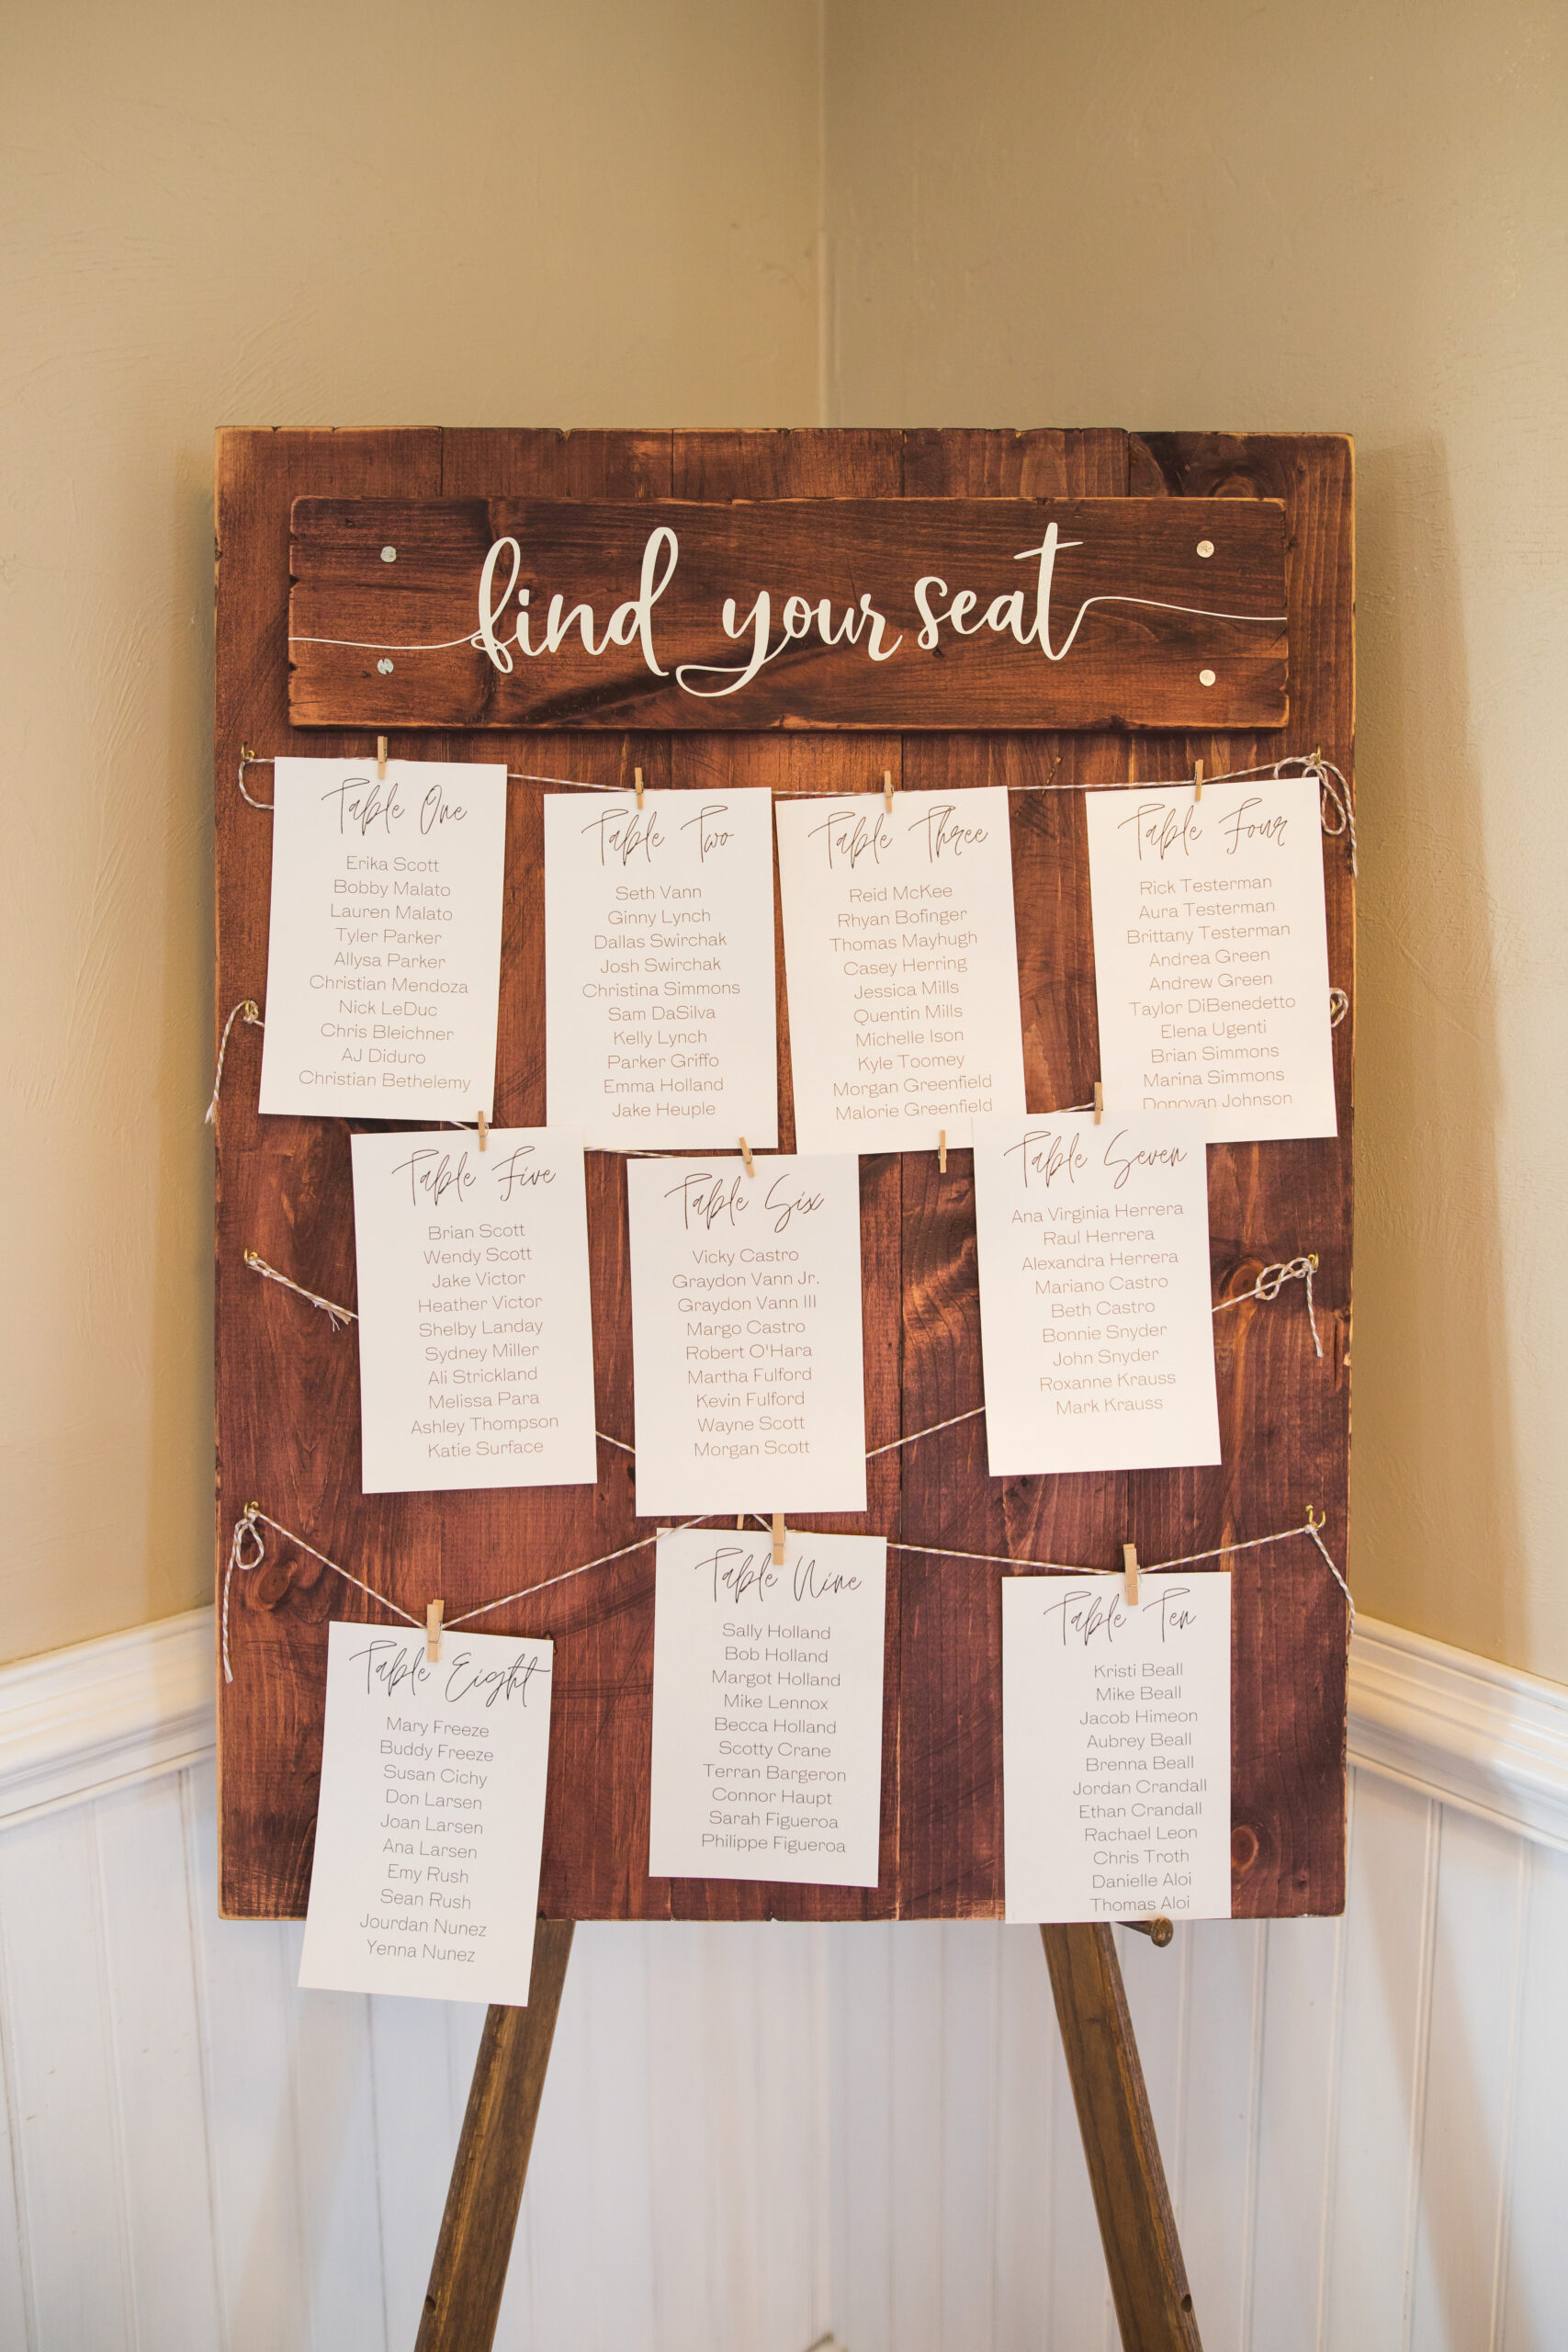 find your seat
Table One
Erika Scott
Bobby Malato
Lauren Malato
Tyler Parker
Allysa Parker
Christian Mendoza
Nick LeDuc
Chris Bleichner
AJ Diduro
Christian Bethelemy
Table Two
Seth Vann
Ginny Lynch
Dallas Swirchak
Josh Swirchak
Christina Simmons
Sam DaSilva
Kelly Lynch
Parker Griffo
Emma Holland
Jake Heuple
Table Three
Reid McKee
Rhyan Bofinger
Thomas Mayhugh
Casey Herring
Jessica Mills
Quentin Mills
Michelle Ison
Kyle Toomey
Morgan Greenfield
Malorie Greenfield
Table Four
Rick Testerman
Aura Testerman
Brittany Testerman
Andrea Green
Andrew Green
Taylor DiBenedetto
Elena Ugenti
Brian Simmons
Marina Simmons
Donovan Johnson
Table Five
Brian Scott
Wendy Scott
Jake Victor
Heather Victor
Shelby Landay
Sydney Miller
Ali Strickland
Melissa Para
Ashley Thompson
Katie Surface
Table Six
Vicky Castro
Graydon Vann Jr.
Graydon Vann III
Margo Castro
Robert O'Hara
Martha Fulford
Kevin Fulford
Wayne Scott
Morgan Scott
Table Seven
Ana Virginia Herrera
Raul Herrera
Alexandra Herrera
Mariano Castro
Beth Castro
Bonnie Snyder
John Snyder
Roxanne Krauss
Mark Krauss
Table Eight
Mary Freeze
Buddy Freeze
Susan Cichy
Don Larsen
Joan Larsen
Ana Larsen
Emy Rush
Sean Rush
Jourdan Nunez
Yenna Nunez
Table Nine
Sally Holland
Bob Holland
Margot Holland
Mike Lennox
Becca Holland
Scotty Crane
Terran Bargeron
Connor Haupt
Sarah Figueroa
Philippe Figueroa
Table Ten
Kristi Beall
Mike Beall
Jacob Himeon
Aubrey Beall
Brenna Beall
Jordan Crandall
Ethan Crandall
Rachael Leon
Chris Troth
Danielle Aloi
Thomas Aloi